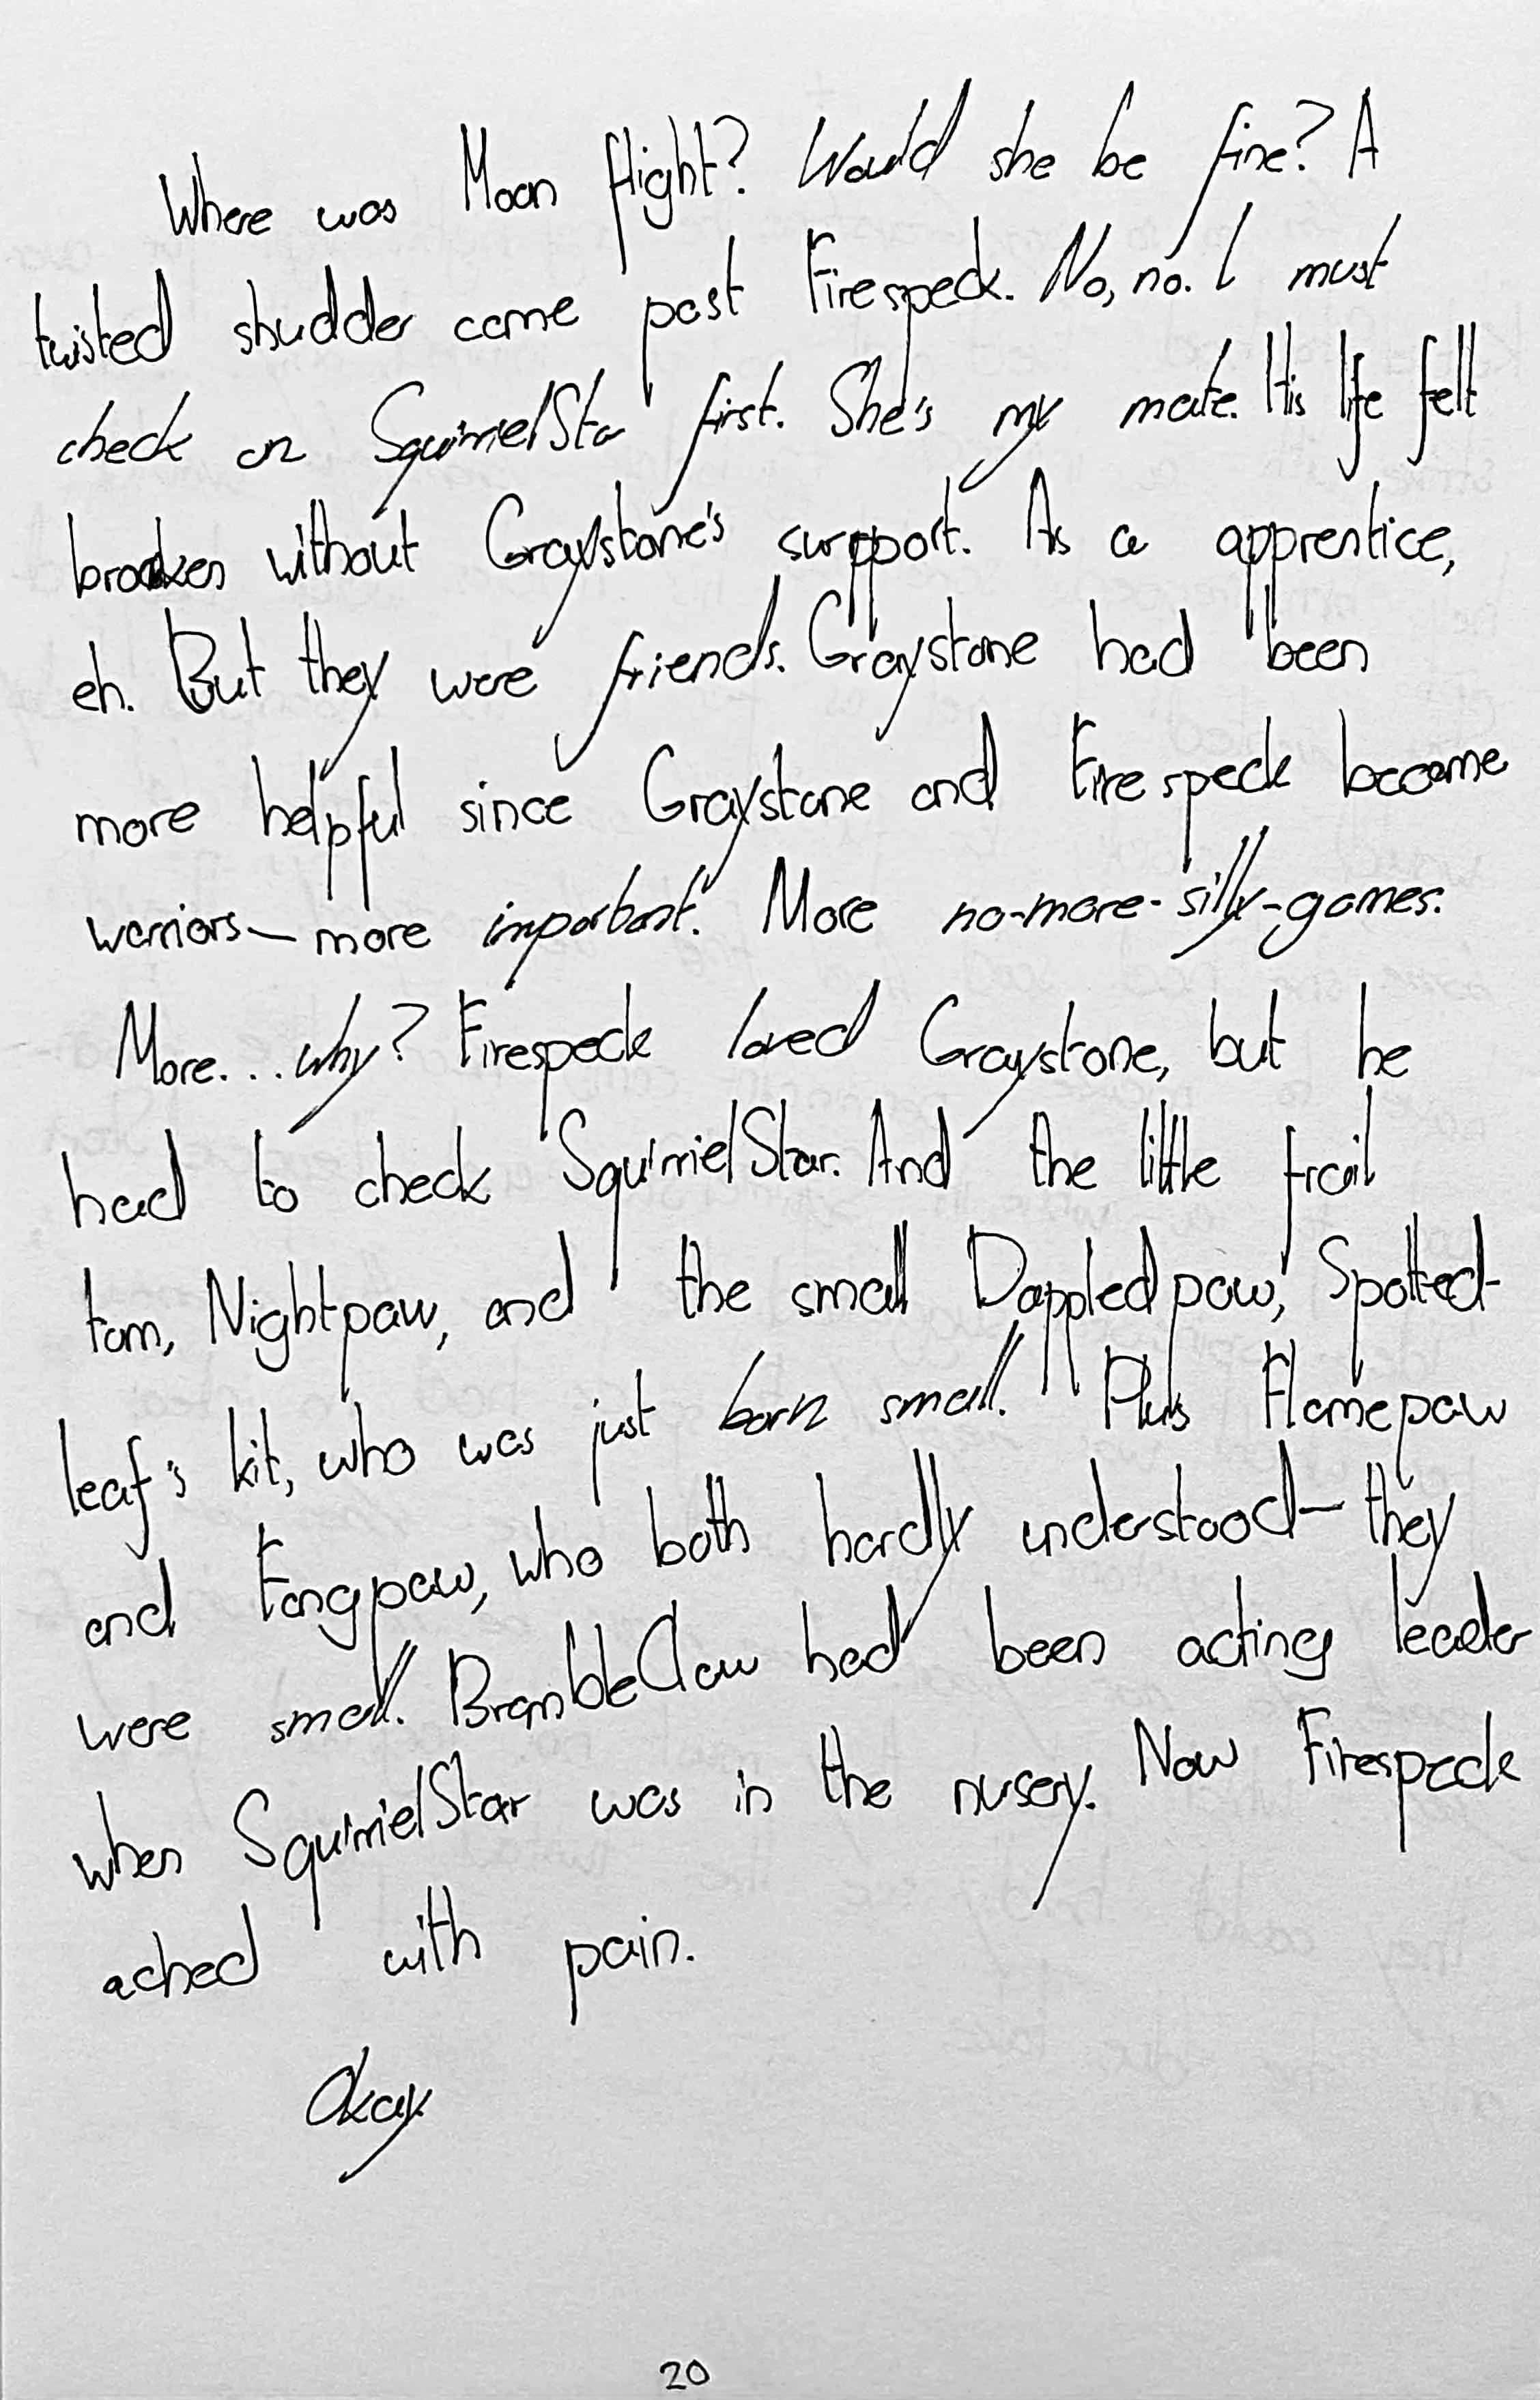 Where was Moon flight? Would she be fine? A
twisted shudder came past Firespeck. No, no. I must
check on SquirrielSta first. She's my mate. His life felt
broken without Graystone's support. As a apprentice,
eh. But they were friends. Graystone had been
more helpful since Graystone and Firespeck become
warriors—more important. More no-more-silly-games.
More...why? Firespeck loved Graystone, but he
had to check SquirrielStar. And the little frail
tom, Nightpaw, and the small Dappledpaw, Spotted-
leaf's kit, who was just born small. Plus Flamepaw
and Fangpaw, who both hardly understood—they
were small. BrambleClaw had been acting leader
when SquirrielStar was in the nursery. Now Firespeck
ached with pain.
Okay.
20